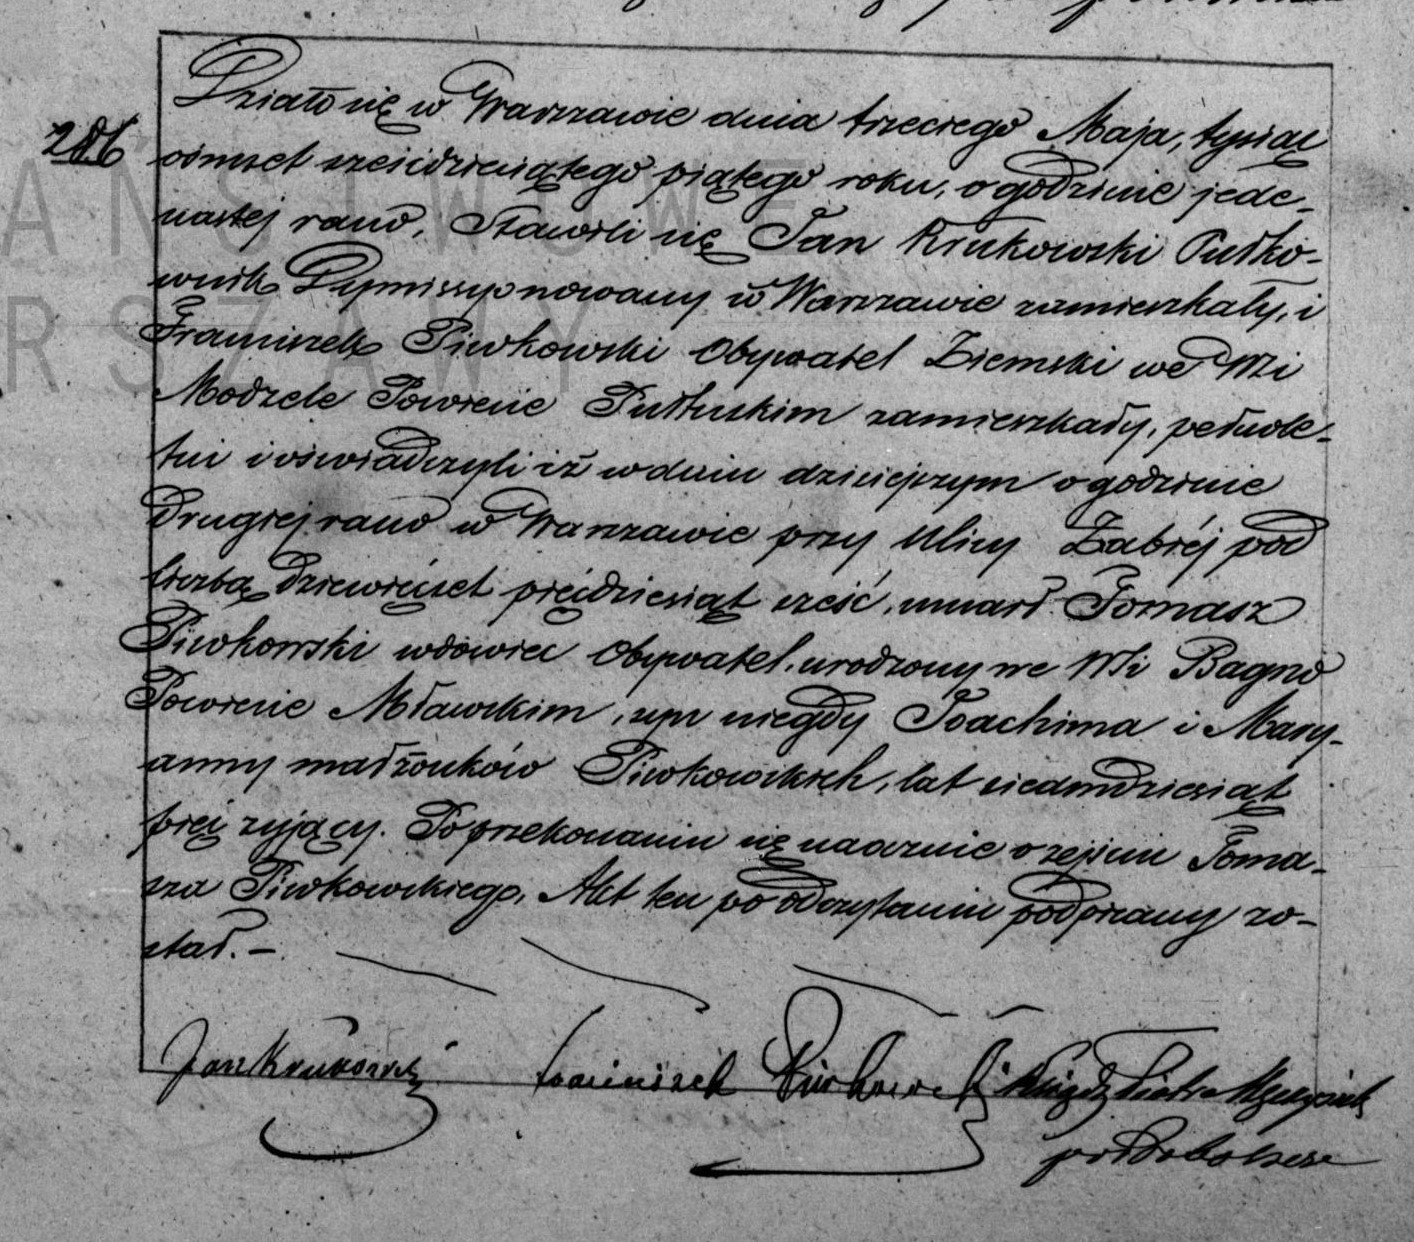 286
Działo się w Warszawie dnia trzeciego Maja, tysiąc
ośmset sześćdziesiątego piątego roku, o godzinie jede-
nastej rano. Stawili się Jan Krukowski Pułko-
wnik Dymissyonowany w Warszawie zamieszkały, i
Franciszek Piwkowski Obywatel Ziemski we Wsi
Modzele Powiecie Pułtuskim zamieszkały, pełnole-
tni i oświadczyli iż w dniu dzisiejszym o godzinie
drugiej rano w Warszawie przy Ulicy Żabiéj pod
liczbą dziewięćset pięćdziesiąt sześć, umarł Tomasz
Piwkowski wdowiec Obywatel, urodzony we Wsi Bagno
Powiecie Mławskim, syn niegdy Joachima i Mary-
anny małżonków Piwkowskich, lat siedmdziesiąt
pięć żyjący. Po przekonaniu się naocznie o zejściu Toma-
sza Piwkowskiego, Akt ten po odczytaniu podpisany zo-
stał. —
Jan Krukowski Franciszek Piwkowski Ksiądz Piotr
AŃSTWOWE
RSZAWY